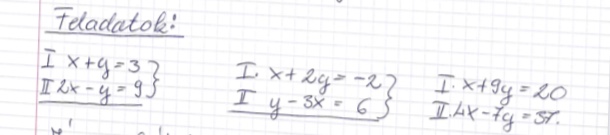 Feladatok:
I x+y=3
II 2x-y=9
I. x+2y=-2
II y-3x=6
I. x+9y=20
II. 4x-7y=37.